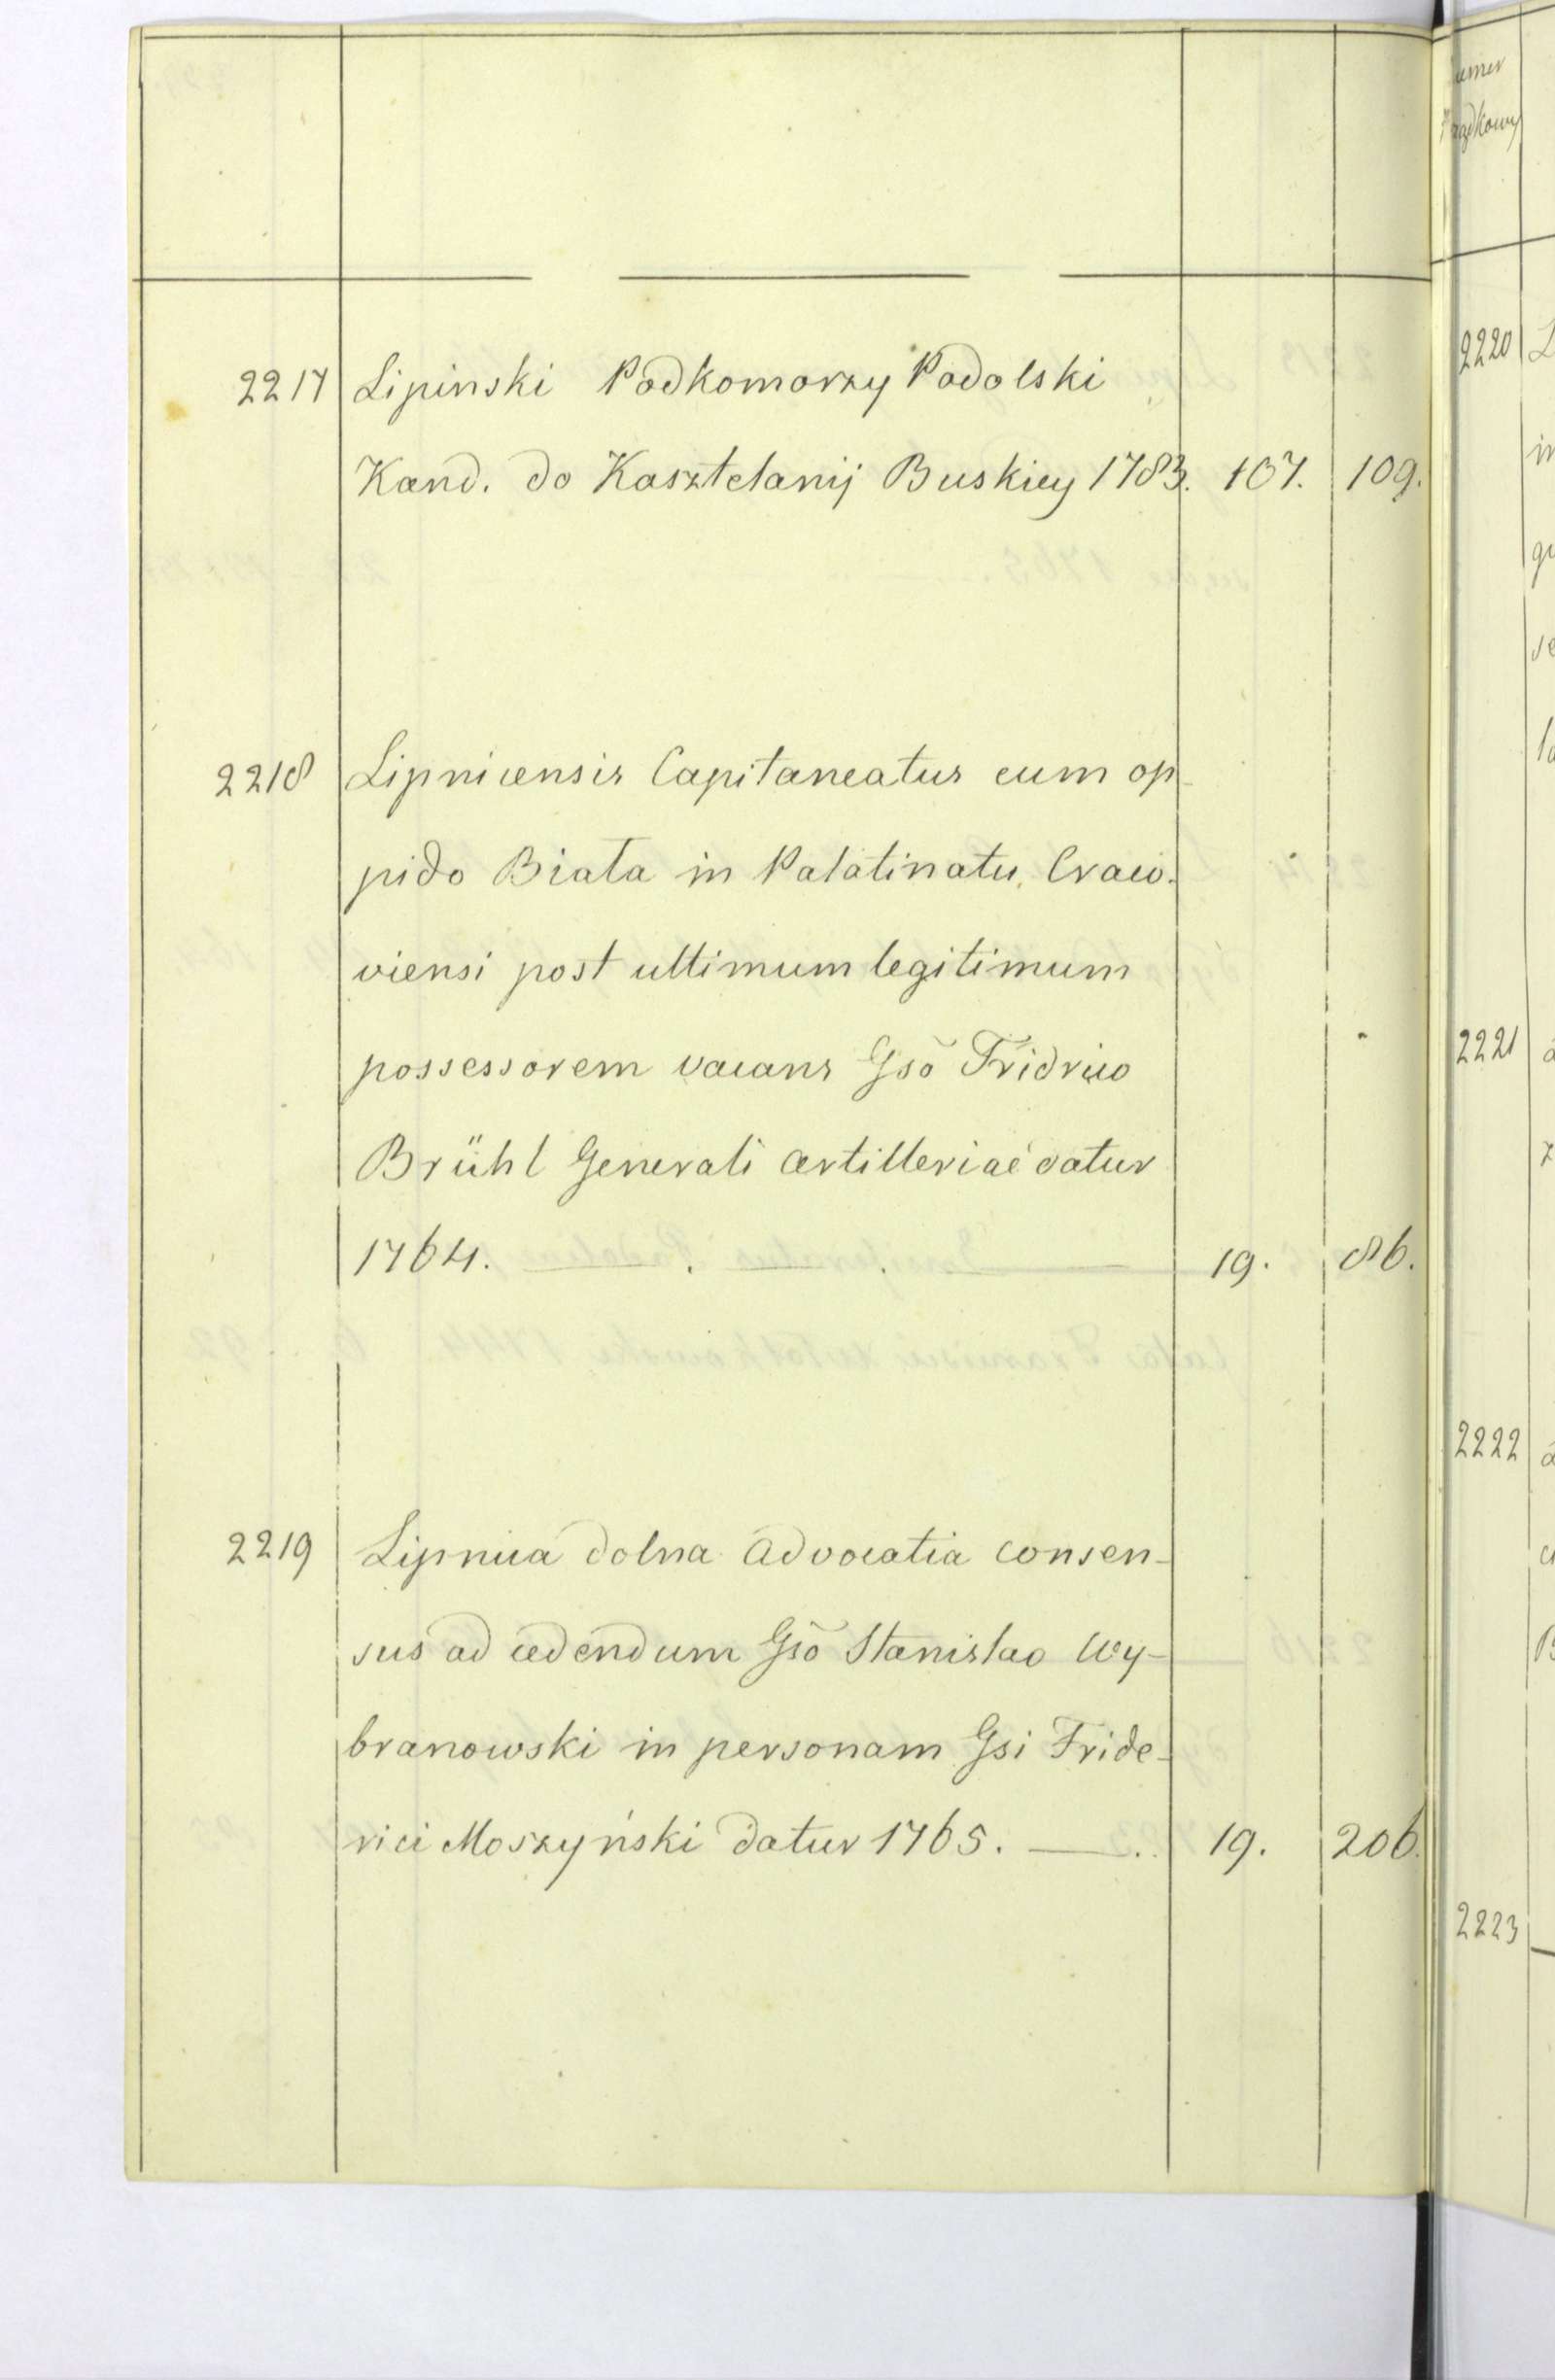 2217 Lipinski Podkomorzy Podolski
Kand. do Kasztelanij Buskiey 1783. 107. 109.
2218 Lipnicensis Capitaneatus cum op-
pido Biała in Palatinatu Craco-
viensi post ultimum legitimum
possessorem vacans Gsõ Fridrico
Brühl Generali artilleriae datur
1764. 19. 86.
2219 Lipnica dolna advocatia consen-
sus ad cedendum Gsõ Stanislao Wy-
branowski in personam Gsi Fride-
rici Moszyński datur 1765. 19. 206.
2220
2221
2222
2223